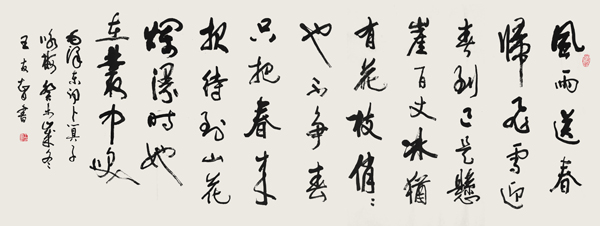 風雨送春
歸飛雪迎
春到已是懸
崖百丈冰猶
有花枝俏〻
也不争春
只把春来
报待到山花
爛漫時她
在叢中咲
毛泽东词卜算子
咏梅癸未歲冬
王友智書